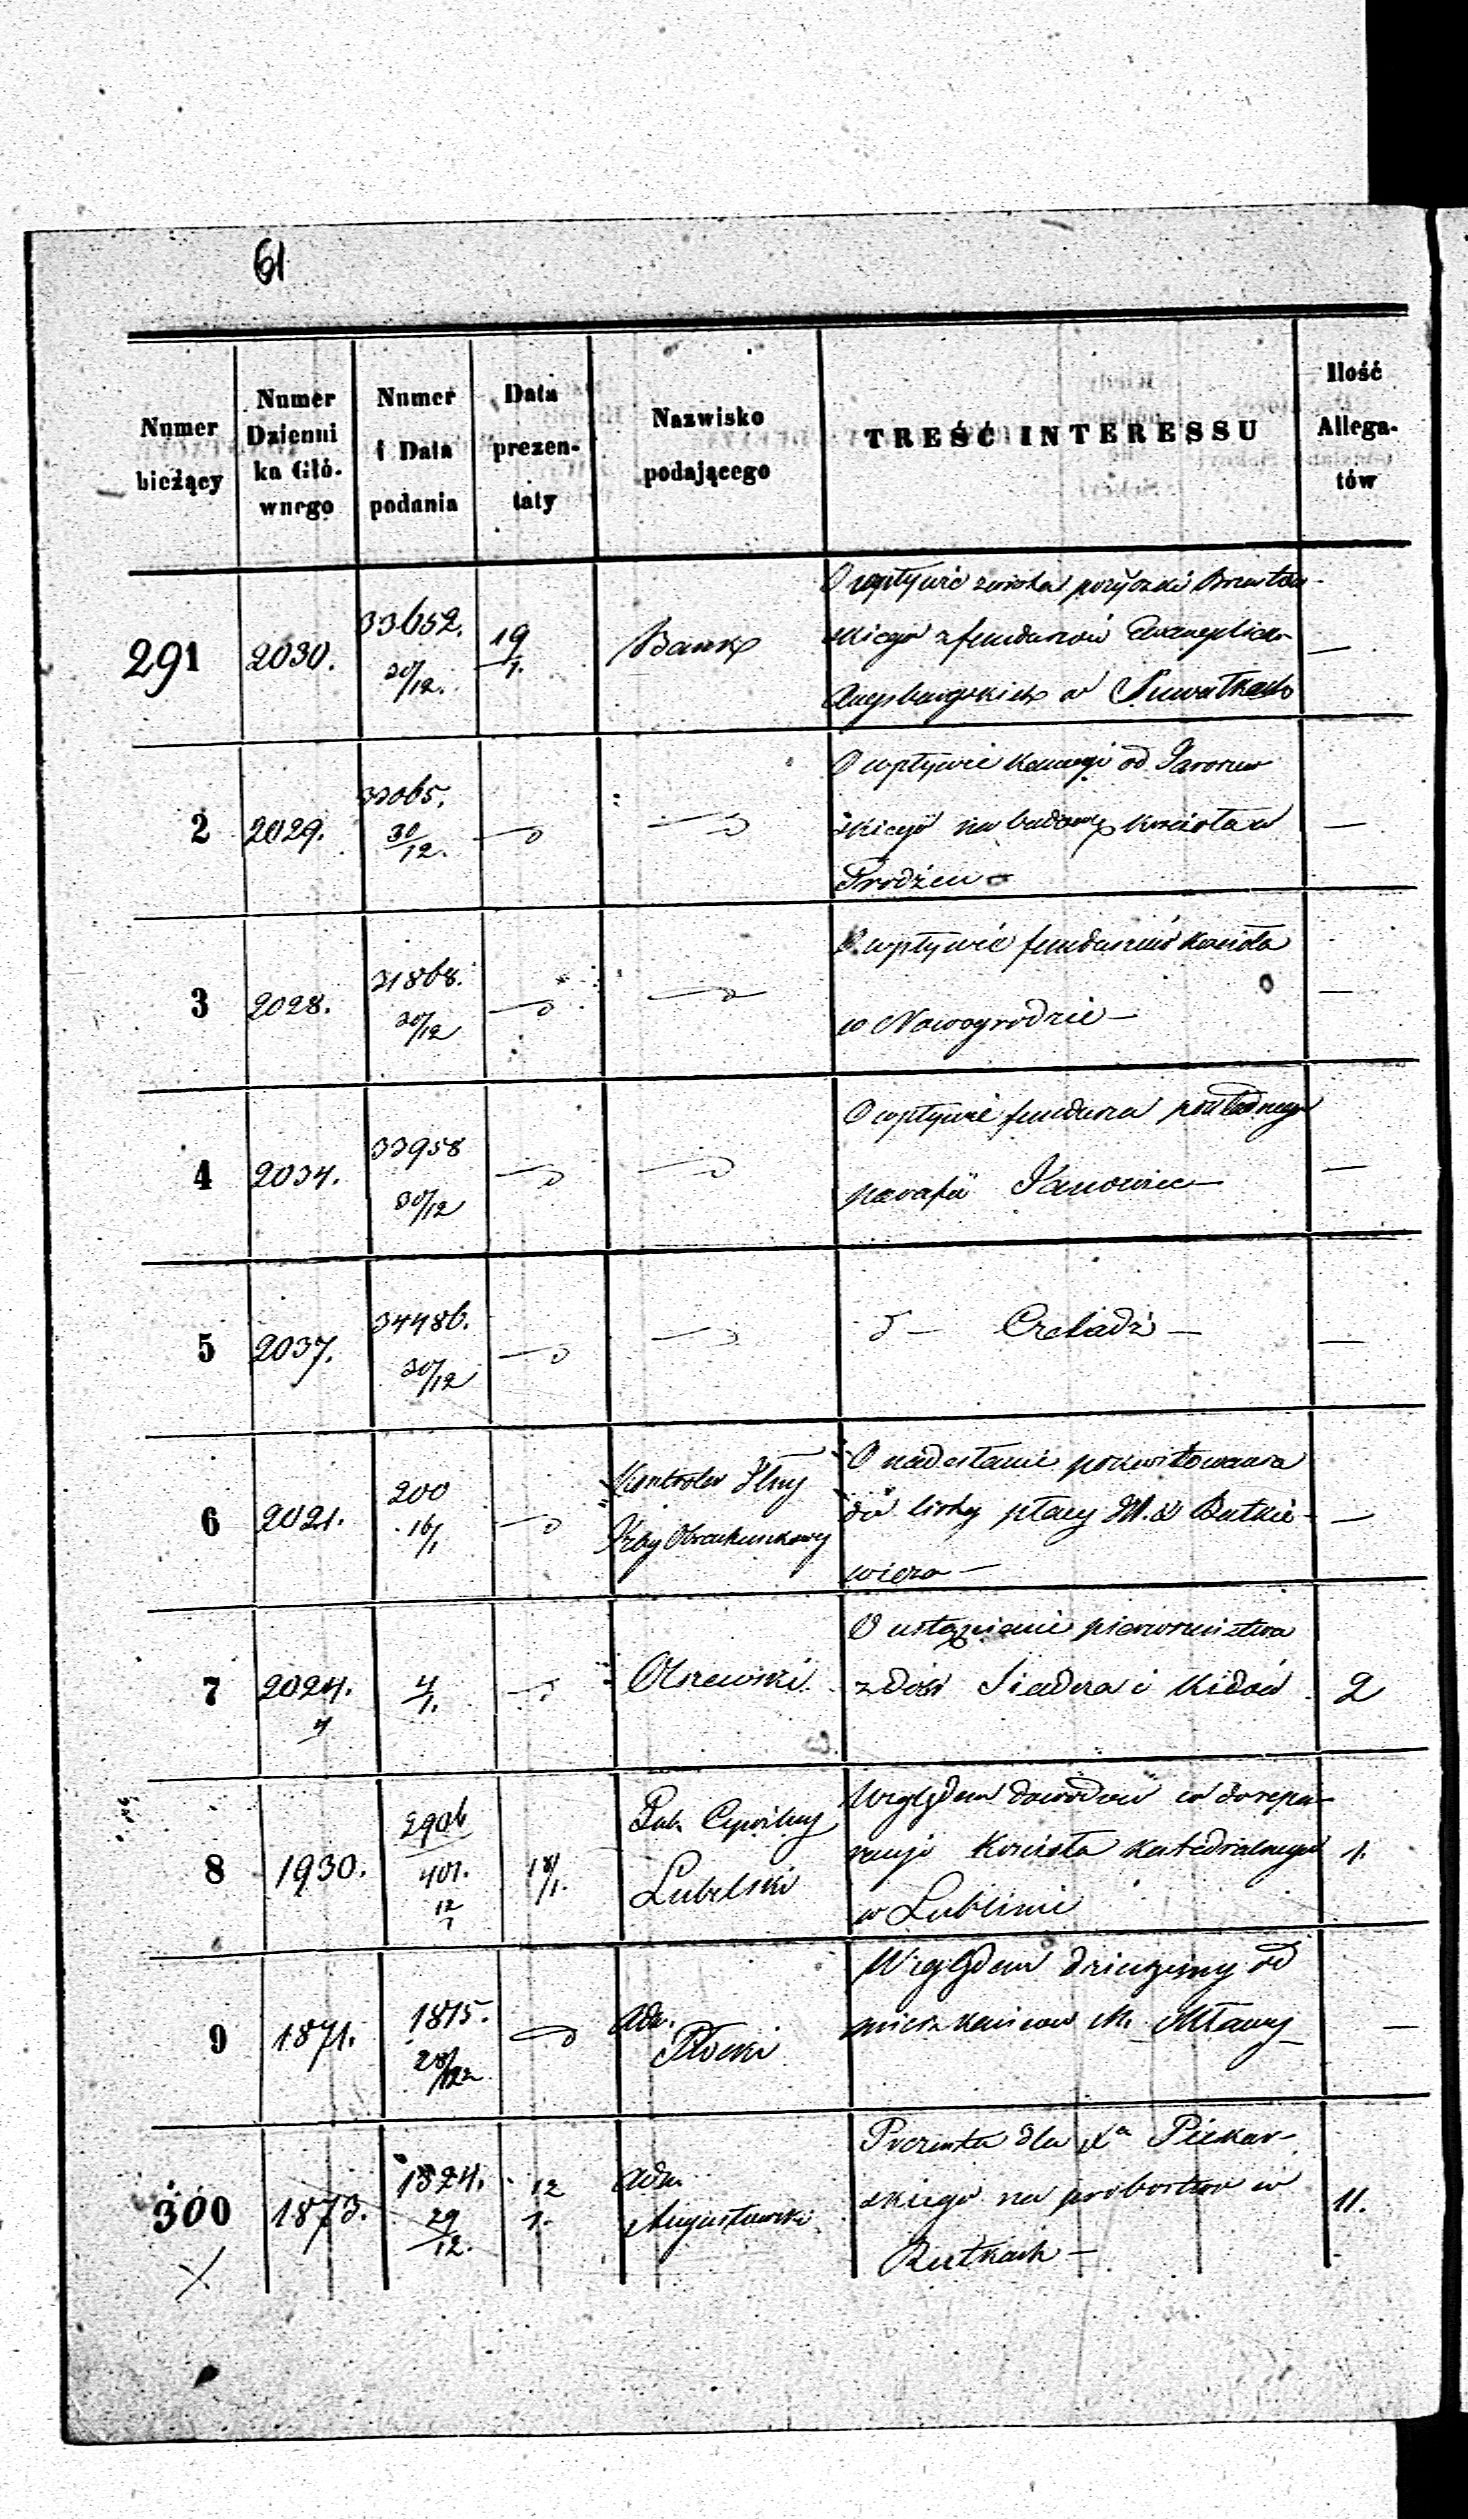 61
Numer bieżący | Numer Dziennika Głównego | Numer i Data podania | Data prezentaty | Nazwisko podającego | TREŚĆ INTERESSU | Ilość Allegatów
291 | 2030. | 33652. 30/12. | 19/1. | Bank | O wpływie zwrotu pożyczki
skiego z funduszów Ewangelicko
Augsburgskich w Suwałkach | —
2 | 2029. | 33065. 30/12. | O wpływie kaucyi od Jaworow
skiego na budowę kościoła w
| —
3 | 2028. | 31868. 30/12 | O wpływie funduszów kościoła
w Nowogrodzie — | —
4 | 2034. | 33958 30/12 | O wpływie funduszu pokładnego
parafii Janowiec — | —
5 | 2037. | 34486. 30/12 | d — Czeladź — | —
6 | 2021. | 200 16/1 | Kontroler Jlny
Izby Obrachunkowy | O nadesłanie pokwitowania
do listy płacy Butkie-
wicza — | —
7 | 2024. 4 | 4/1. | Olszewski | O ustąpienie pierwszeństwa
z dóbr Siadcza i Kidów | 2
8 | 1930. | 2906 401. 12/1 | 18/1. | Gub. Cywilny
Lubelski | Względem dowodów do repa-
racyi Kościoła Katedralnego
w Lublinie | 1.
9 | 1871. | 1815. 28/12 | Adm.
Płocki | Względem dziesięciny od
mieszkańców M. Mławy — | —
300 | 1873. | 1824. 29/12. | 12 1. | Adm.
Augustowski | Prezenta dla Xa Piekar-
skiego na probostwo w
Rutkach — | 11.